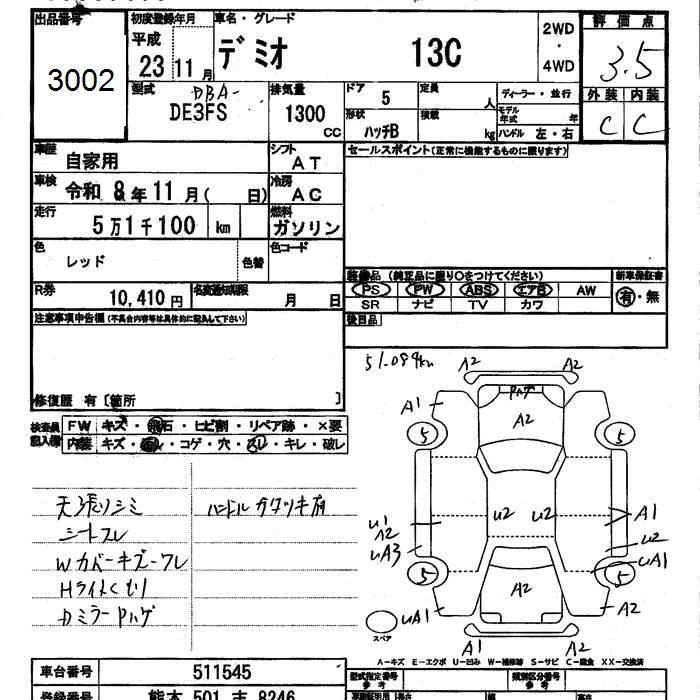 出品番号 初度登録年月 車名・グレード 評価点
3002 平成 23 11月 デミオ 13C 2WD・4WD 3.5
型式 DBA- DE3FS 排気量 1300 CC
ドア 5 定員 人 ディーラー・並行 外装 内装
形状 ハッチB 積載 kg モデル年式 年 C C
ハンドル 左・右
車歴 自家用 シフト AT セールスポイント(正常に機能するものに限ります)
車検 令和 8年 11月( 日) 冷房 AC
走行 5万1千100 km 燃料 ガソリン
色 レッド 色替 色コード
装備品(純正品に限り○をつけてください) 新車保証書
R券 10,410円 名変通知期限 月 日
PS PW ABS エアB AW 有・無
SR ナビ TV カワ
注意事項申告欄(不具合内容等は具体的に記入して下さい) 後日品
51.089km A2 A2
修復歴 有〔箇所 〕
A1 ハゲ A2
検査員記入欄 FW キズ・飛石・ヒビ割・リペア跡・×要
内装 キズ・・コゲ・穴・スレ・キレ・破レ
5 5
天張リシミ ハンドルガタツキ有
シートスレ
Wカバーキズ-ワレ
Hライトくもり
Dミラーハゲ
U1 A2 U2 U2 A1
UA3 U2
5 UA1 5
UA1 A2 A2
スペア
A1 A2
A-キズ E-エクボ U-凹み W-補修跡 S-サビ C-腐食 XX-交換済
車台番号 511545 型式指定番号 参考 類別区分番号 参考
登録番号 熊本 501 8246 長さ 幅 高さ